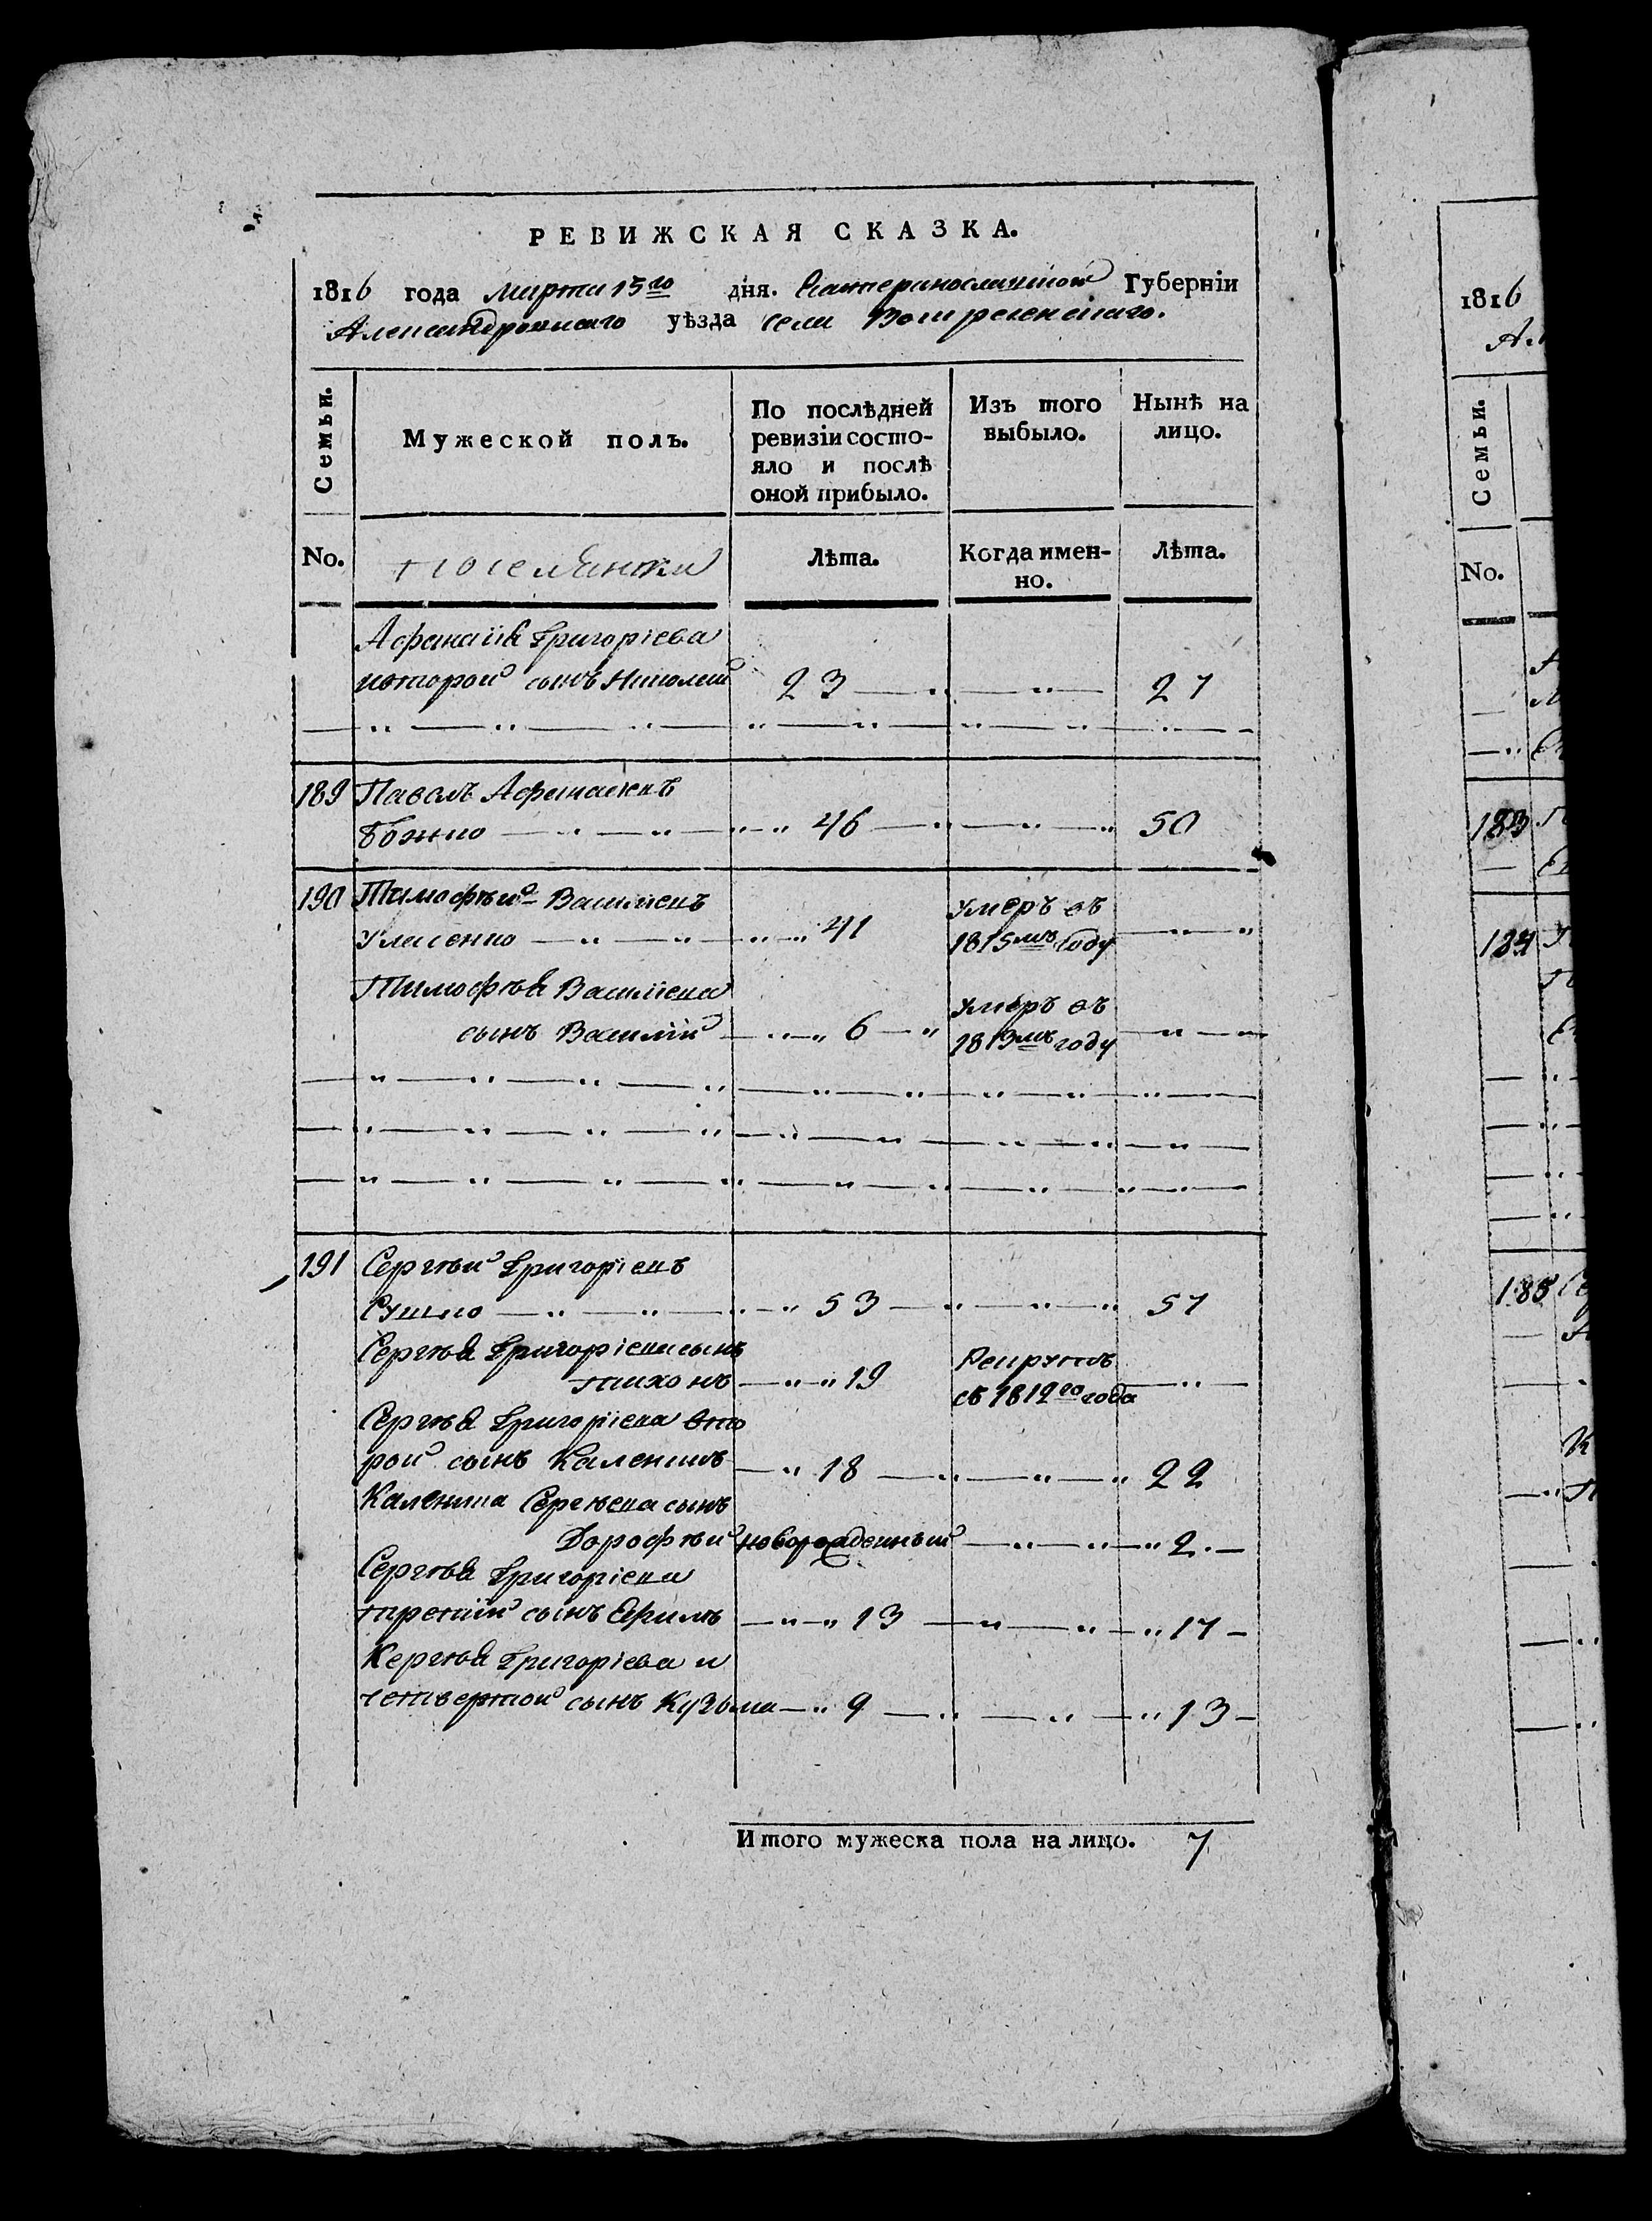 РЕВИЖСКАЯ СКАЗКА.
1816 года Марта 15го дня. Екатеринославской Губерніи
Александровскаго уѣзда села Воскресенскаго.
Семьи.
Мужеской полъ.
По послѣдней
ревизіи состо-
яло и послѣ
оной прибыло.
Изъ того
выбыло.
Нынѣ на
лицо.
No.
поселянки
Лѣта.
Когда имен-
но.
Лѣта.
Афанасія Григоріева
второй сынъ Николай 23 27
189 Павелъ Афанасіевъ
Божко 46 50
190 Тимофѣй Василіевъ умеръ въ
Уласенко 41 1815мъ году
Тимофѣя Василіева умеръ въ
сынъ Василій 6 1813мъ году
191 Сергѣй Григоріевъ
Сушко 53 57
Сергѣя Григоріева сынъ Рекрутъ
тихонъ 19 съ 1812го года
Сергѣя Григоріева вто
рой сынъ Каленикъ 18 22
Каленика Сергѣева сынъ
Дорофѣй новорожденный 2
Сергѣя Григоріева
третій сынъ Ефимъ 13 17
Сергѣя Григоріева и
четвертой сынъ Кузьма 9 13
Итого мужеска пола на лицо. 7
1816
Семьи.
No.
183
184
185